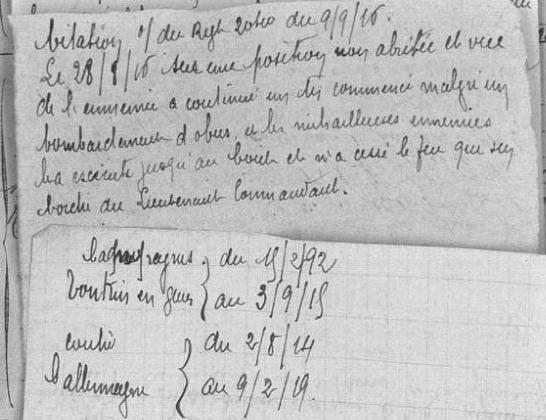 Citation % du Regt 20410 du 9/9/16.
Le 28/8/16 sur une position non abritée et vue
de l'ennemie a continué un tir commencé malgré un
bombardement d'obus, et les mitrailleuses ennemies
l'a jusqu'au bout et n'a cessé le feu que sur
l'ordre du Lieutenant Commandant.
Campagnes du 15/2/92
en au 3/9/15
contre du 2/8/14
l'allemagne au 9/2/19.